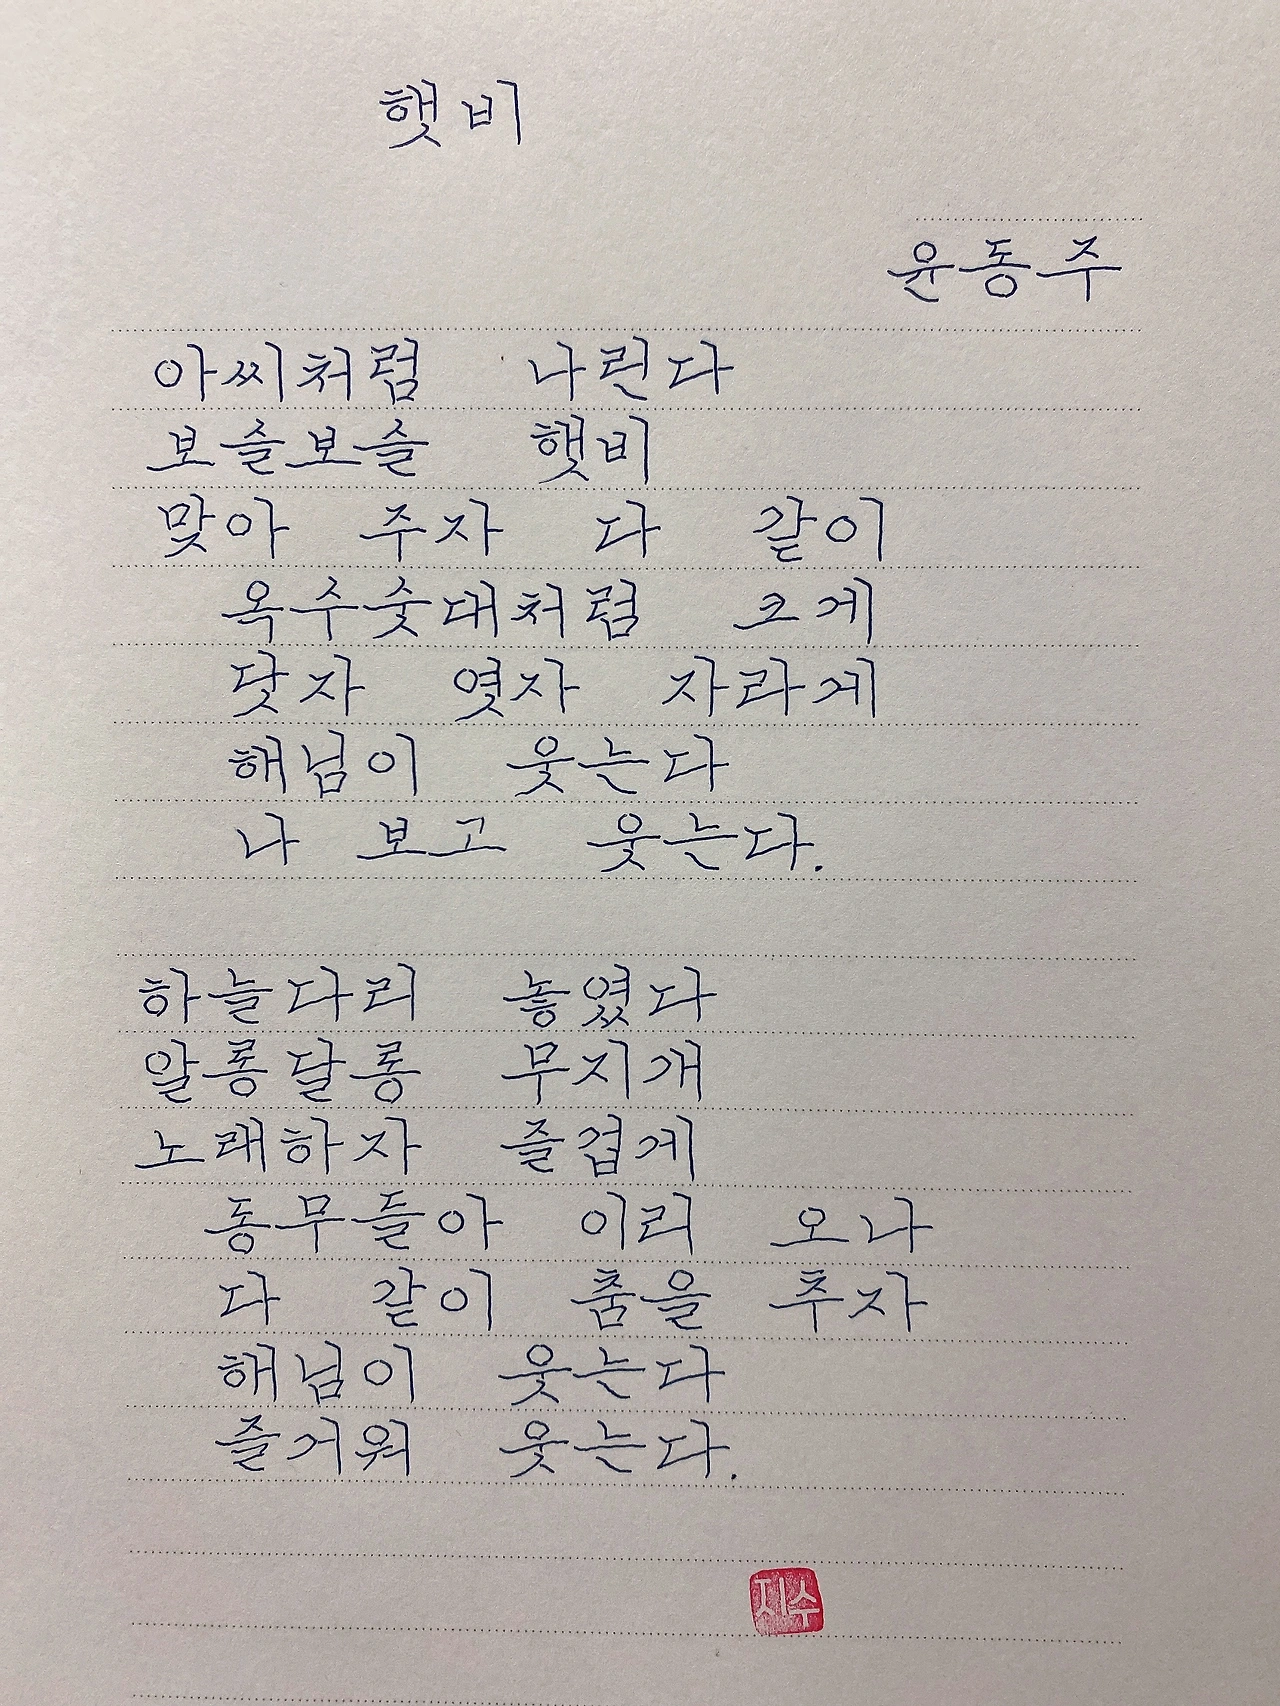 햇비
윤동주
아씨처럼 나린다
보슬보슬 햇비
맞아 주자 다 같이
옥수숫대처럼 크게
닷자 엿자 자라게
해님이 웃는다
나 보고 웃는다.
하늘다리 놓였다
알롱달롱 무지개
노래하자 즐겁게
동무들아 이리 오나
다 같이 춤을 추자
해님이 웃는다
즐거워 웃는다.
지수